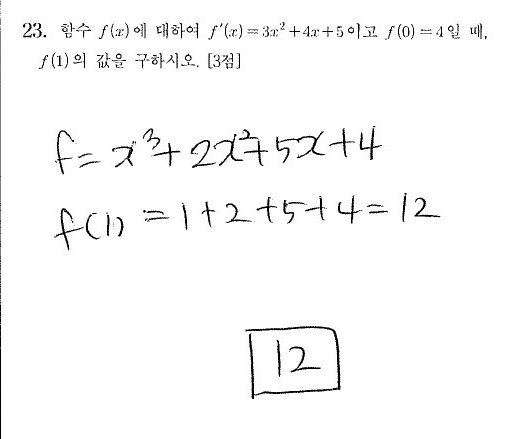 23. 함수 f(x)에 대하여 f′(x)=3x²+4x+5이고 f(0)=4일 때,
f(1)의 값을 구하시오. [3점]
f=x³+2x²+5x+4
f(1)=1+2+5+4=12
12